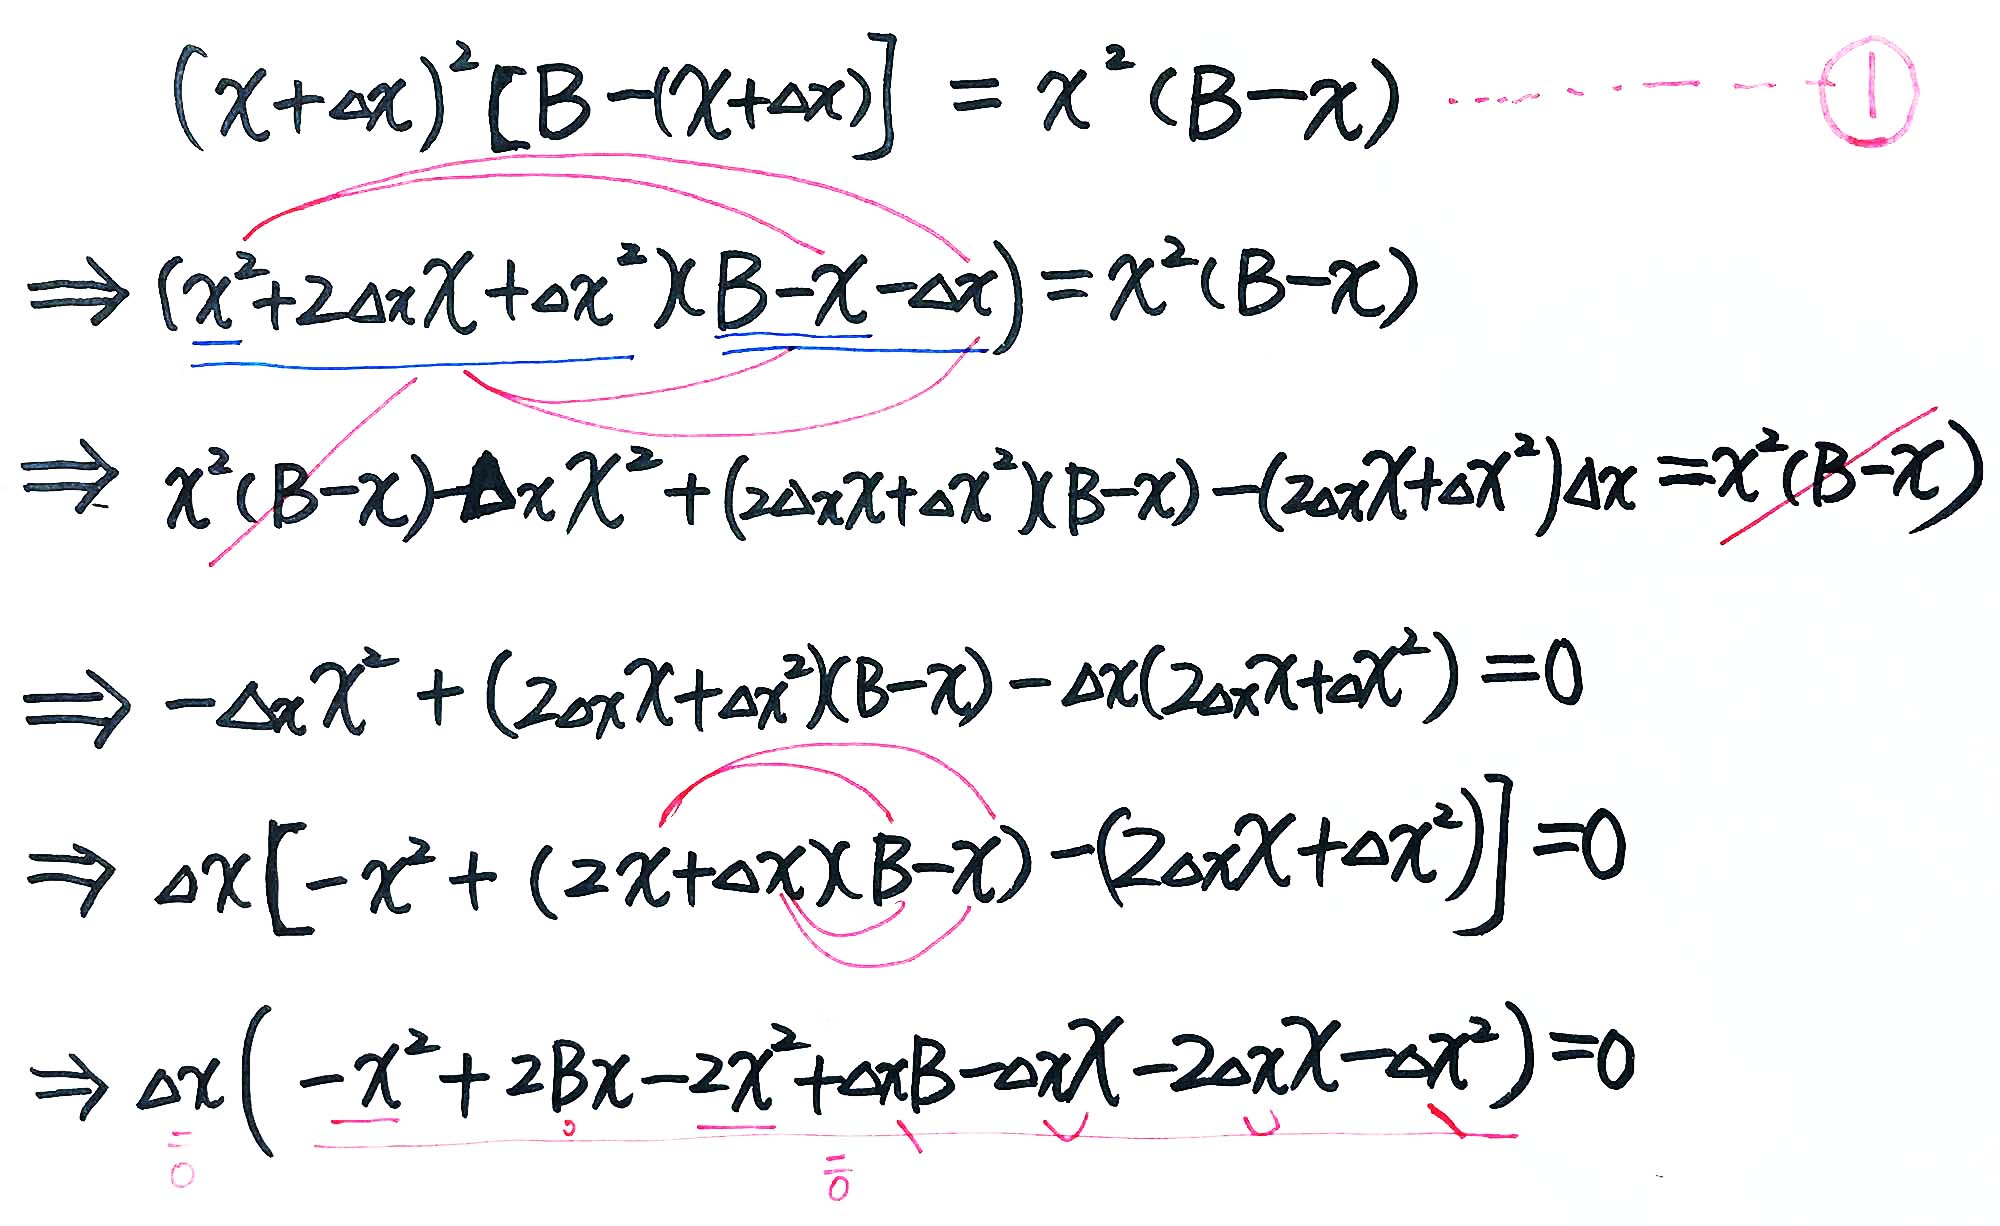 (x+Δx)²[B-(x+Δx)] = x²(B-x) ............ ①
⇒ (x²+2Δxx+Δx²)(B-x-Δx) = x²(B-x)
⇒ x²(B-x)-Δxx²+(2Δxx+Δx²)(B-x)-(2Δxx+Δx²)Δx = x²(B-x)
⇒ -Δxx²+(2Δxx+Δx²)(B-x)-Δx(2Δxx+Δx²)=0
⇒ Δx[-x²+(2x+Δx)(B-x)-(2Δxx+Δx²)]=0
⇒ Δx(-x²+2Bx-2x²+ΔxB-Δxx-2Δxx-Δx²)=0
=0 =0